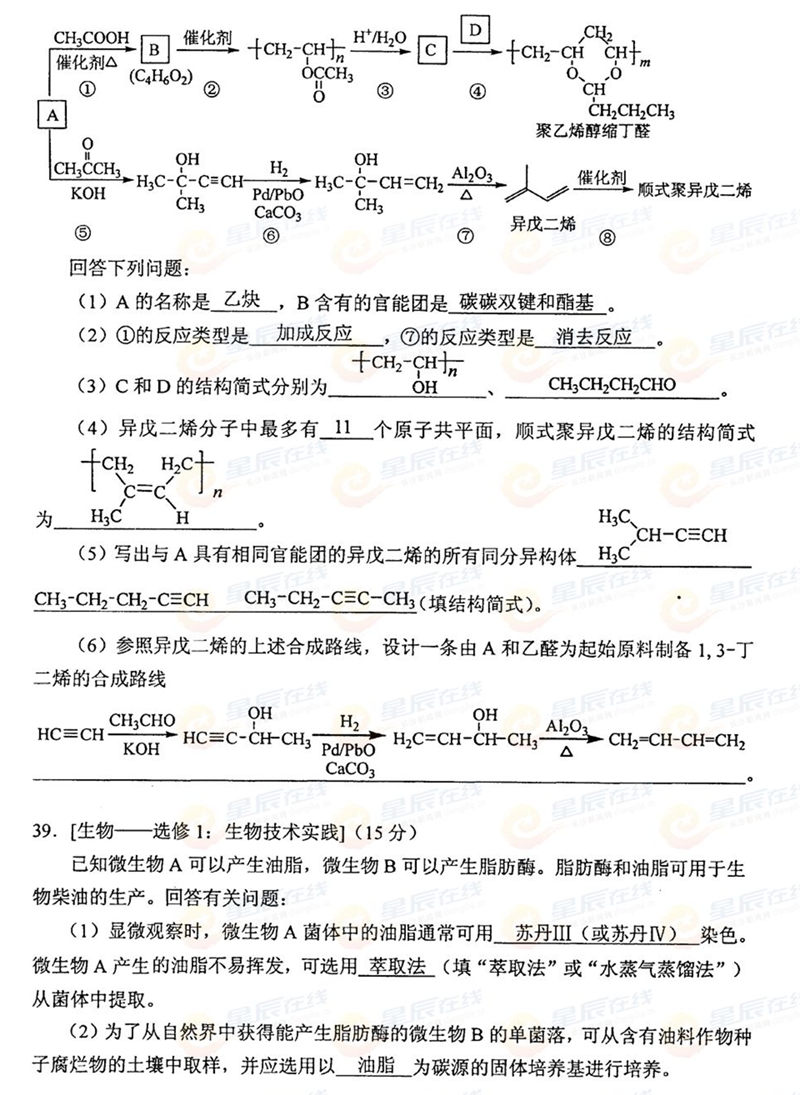 CH₃COOH 催化剂 H⁺/H₂O D CH₂
A B C ⁅CH₂-CH⁆n ⁅CH₂-CH CH⁆m
催化剂△ (C₄H₆O₂) OCCH₃ O O
① ② O ③ ④ CH
CH₂CH₂CH₃
聚乙烯醇缩丁醛
O OH H₂ OH Al₂O₃ 催化剂
CH₃CCH₃ H₃C-C-C≡CH H₃C-C-CH=CH₂ 顺式聚异戊二烯
KOH CH₃ Pd/PbO CH₃ △
CaCO₃ 异戊二烯
⑤ ⑥ ⑦ ⑧
回答下列问题：
（1）A 的名称是 乙炔 ，B 含有的官能团是 碳碳双键和酯基 。
（2）①的反应类型是 加成反应 ，⑦的反应类型是 消去反应 。
⁅CH₂-CH⁆n
（3）C 和 D 的结构简式分别为 OH 、 CH₃CH₂CH₂CHO 。
（4）异戊二烯分子中最多有 11 个原子共平面，顺式聚异戊二烯的结构简式
⁅CH₂ H₂C⁆n
C=C
为 H₃C H 。
H₃C
CH-C≡CH
（5）写出与 A 具有相同官能团的异戊二烯的所有同分异构体 H₃C
CH₃-CH₂-CH₂-C≡CH CH₃-CH₂-C≡C-CH₃（填结构简式）。
（6）参照异戊二烯的上述合成路线，设计一条由 A 和乙醛为起始原料制备 1, 3-丁
二烯的合成路线
CH₃CHO OH H₂ OH Al₂O₃
HC≡CH HC≡C-CH-CH₃ H₂C=CH-CH-CH₃ CH₂=CH-CH=CH₂
KOH Pd/PbO △
CaCO₃ 。
39．[生物——选修 1：生物技术实践]（15 分）
已知微生物 A 可以产生油脂，微生物 B 可以产生脂肪酶。脂肪酶和油脂可用于生
物柴油的生产。回答有关问题：
（1）显微观察时，微生物 A 菌体中的油脂通常可用 苏丹Ⅲ（或苏丹Ⅳ） 染色。
微生物 A 产生的油脂不易挥发，可选用 萃取法 （填“萃取法”或“水蒸气蒸馏法”）
从菌体中提取。
（2）为了从自然界中获得能产生脂肪酶的微生物 B 的单菌落，可从含有油料作物种
子腐烂物的土壤中取样，并应选用以 油脂 为碳源的固体培养基进行培养。
星辰在线